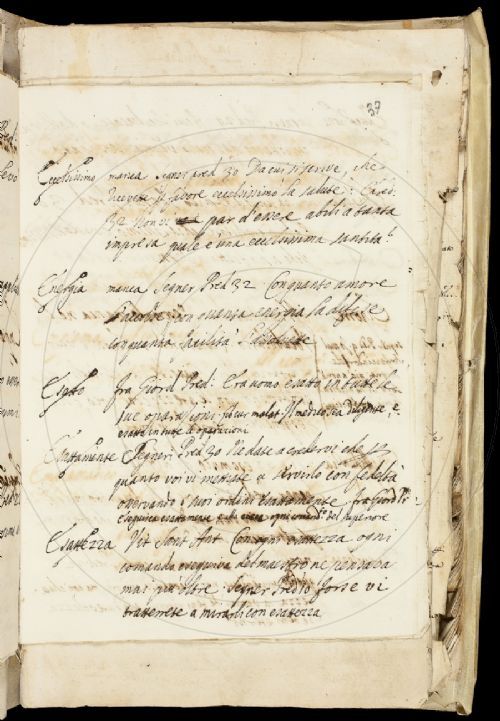 37
Eccelsissimo manca Segner Pred 30 Da cui si serive, che
riceuete p fauore eccelsissimo la salute: Pred:
32 Non vi par d'essere abili à tanta
impresa quale è una eccelsissima santità.
Energia manca Segner Pred 32 Con quanto amore
con quanta energia la difese
con quanta facilità
Esatto fra Giord Pred: Era uomo esatto in tutte le
sue operazioni. Il medico sia diligente, e
esatto in tutte le operazioni
Esattamente Segneri Pred 30 Ne date a credervi che
quanto voi vi mettete a servirlo con fedeltà
osservando i suoi ordini esattamente fra Giord
eseguiva esattamente ogni del superiore
Esattezza Vit Sant Ant Con ogni esattezza ogni
comando eseguiva del maestro ne pensava
mai più oltre Segner Pred 10 forse vi
tratterrete a mirarli con esattezza